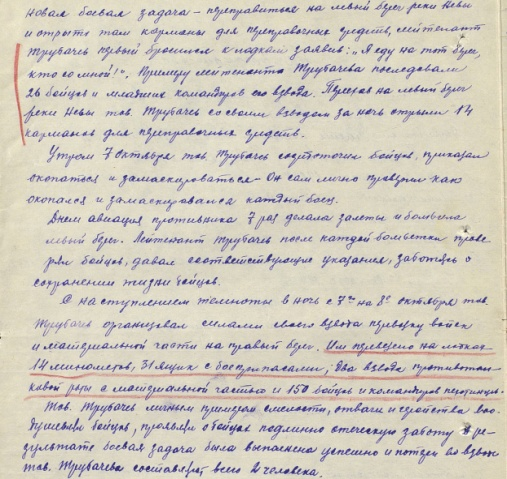 новая боевая задача – переправиться на левый берег реки Невы
и отрыть там карманы для переправочных средств, лейтенант
Трубачев первый бросился к лодкам заявив: „Я еду на тот берег,
кто со мной!". Примеру лейтенанта Трубачева последовали
26 бойцов и младших командиров его взвода. Переехав на левый берег
реки Невы тов. Трубачев со своим взводом за ночь отрыли 14
карманов для переправочных средств.
Утром 7 октября тов. Трубачев бойцов, приказал
окопаться и замаскироваться – Он сам лично проверил как
окопался и замаскировался каждый боец.
Днем авиация противника 7 раз делала залеты и бомбила
левый берег. Лейтенант Трубачев после каждой бомбежки прове-
рял бойцов, давал соответствующие указания, заботясь о
сохранении жизни бойцов.
С наступлением темноты в ночь с 7го на 8е октября тов.
Трубачев организовал силами своего взвода перевозку войск
и материальной части на правый берег. Им перевезено на лодках
14 минометов, 31 ящик с боеприпасами, два взвода противотан-
ковой роты с материальной частью и 150 бойцов и командиров пехотинцев.
Тов. Трубачев личным примером смелости, отваги и геройства воо-
душевлял бойцов, проявлял о бойцах подлинно отеческую заботу в ре-
зультате боевая задача была выполнена успешно и потери во взводе
тов. Трубачева составляют всего 2 человека.